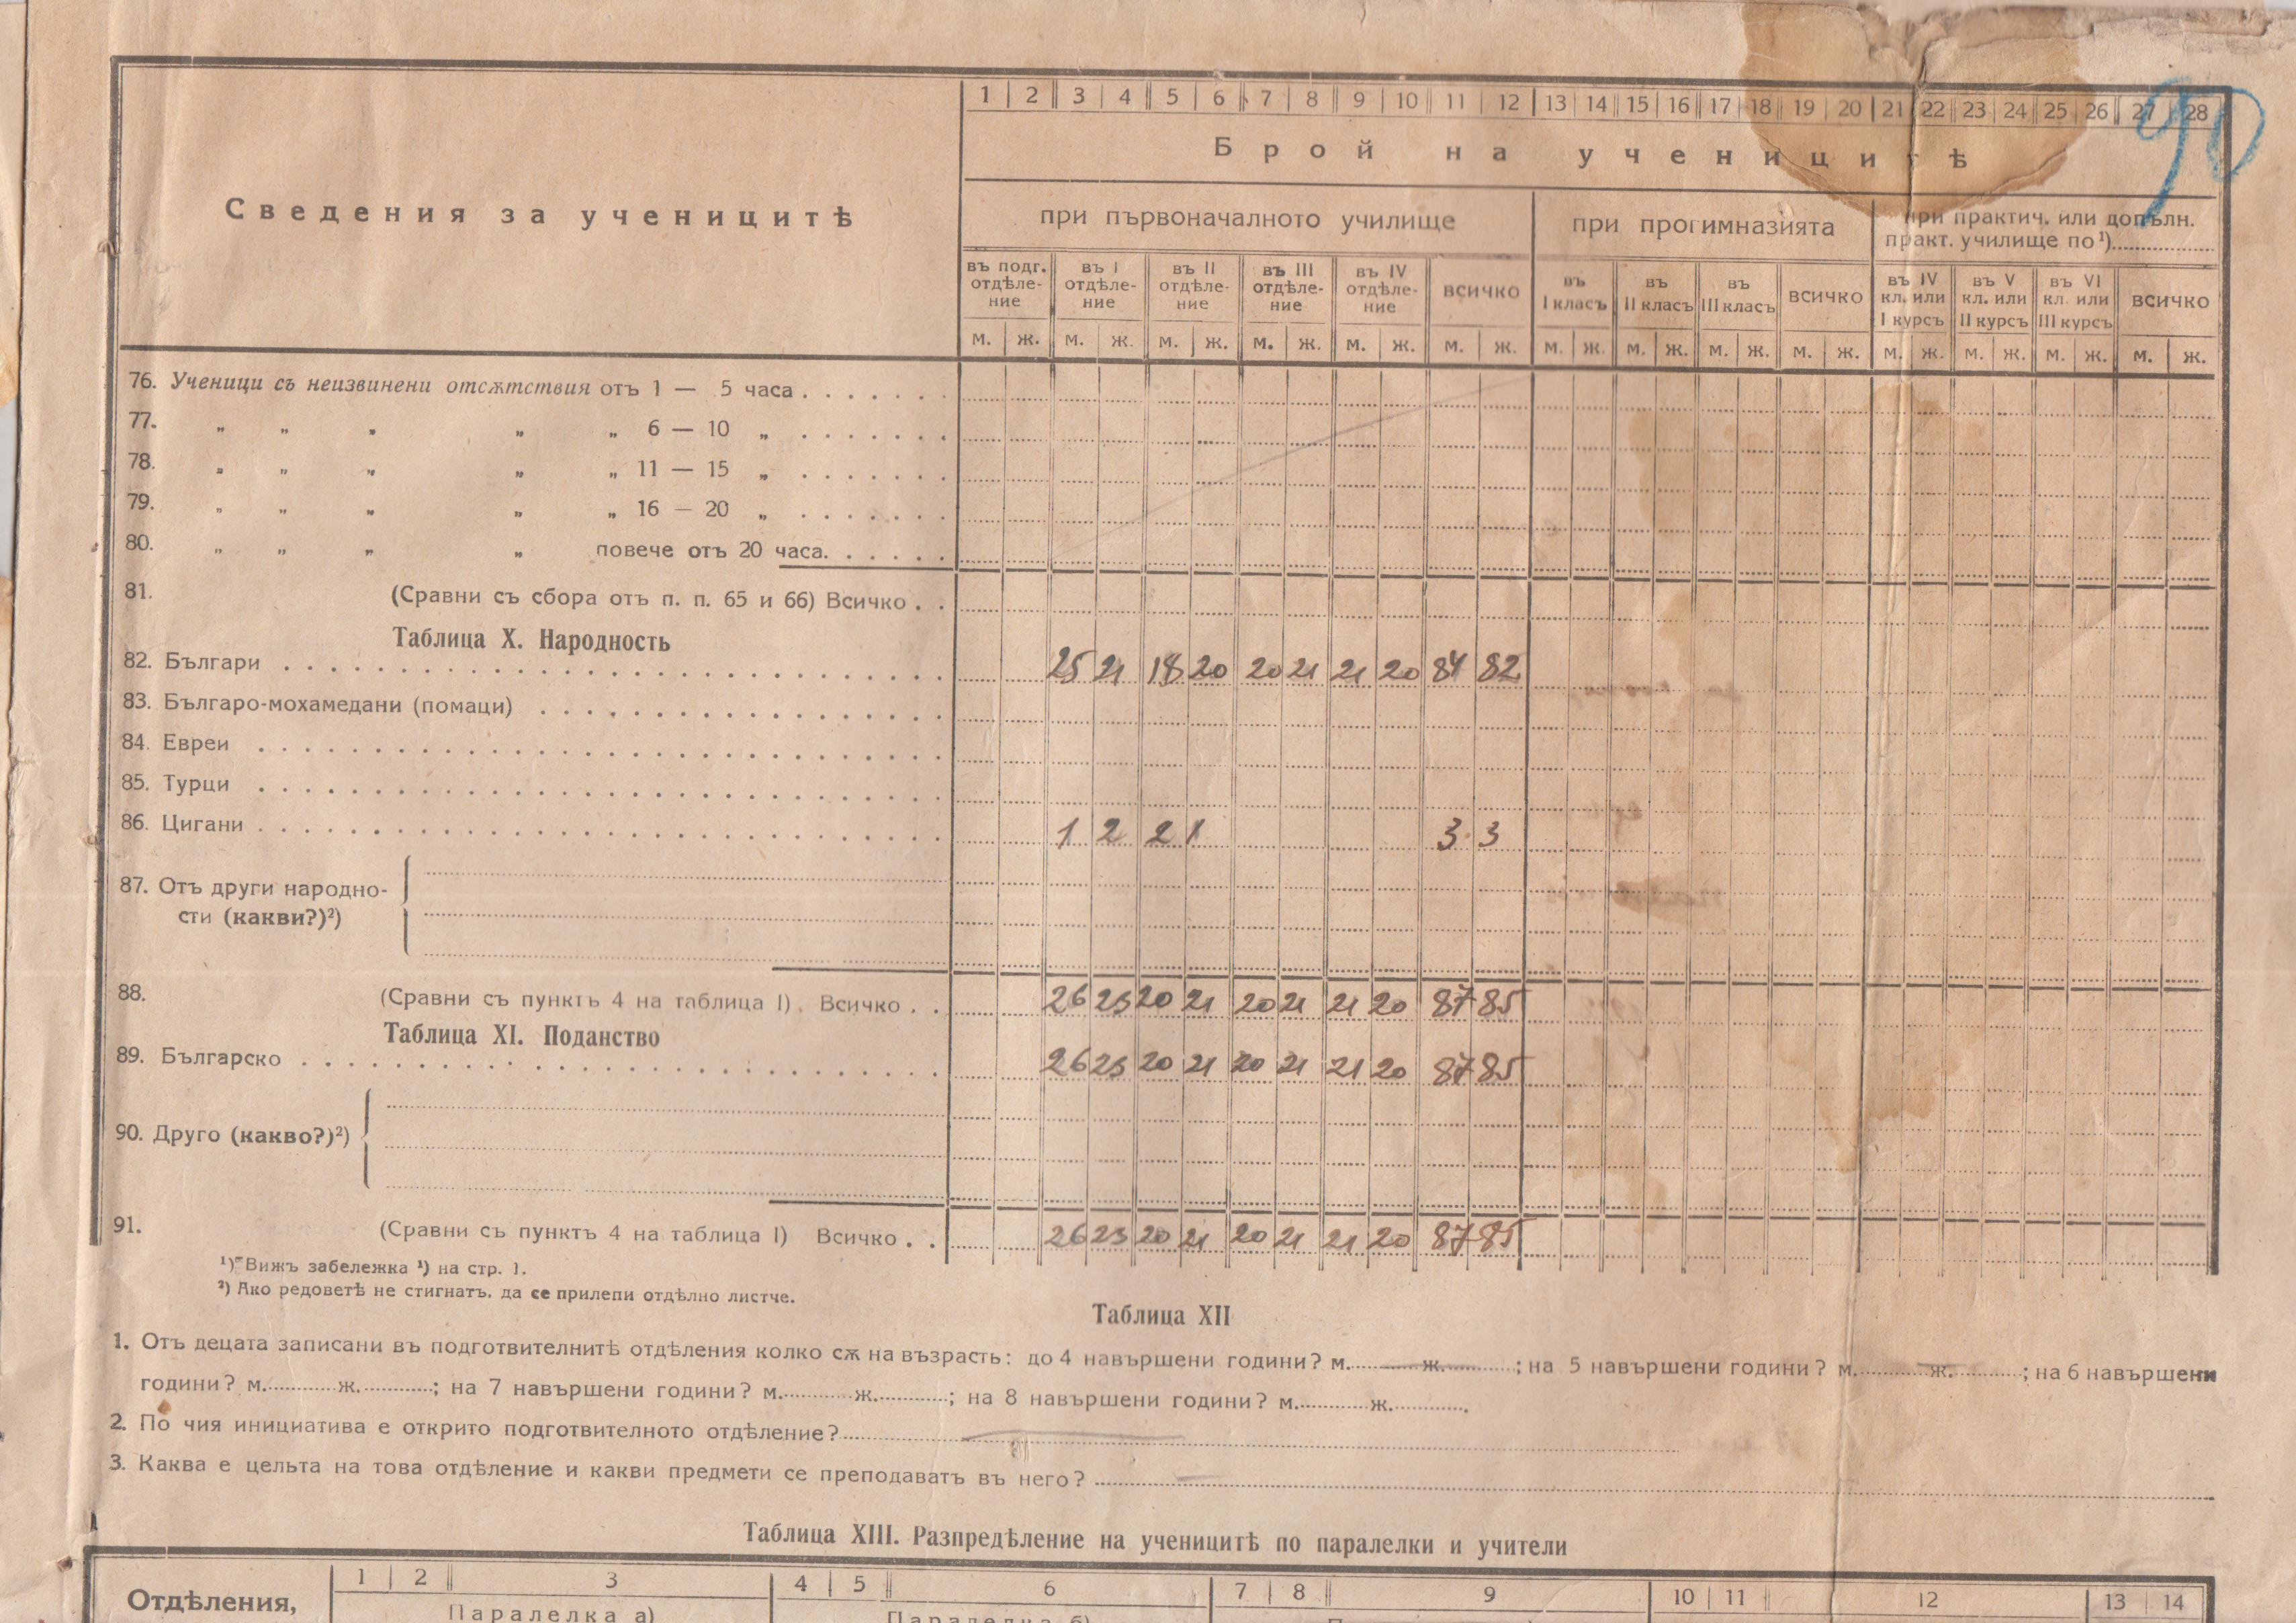 90
1 2 3 4 5 6 7 8 9 10 11 12 13 14 15 16 17 18 19 20 21 22 23 24 25 26 27 28
Брой на ученицитѣ
Сведения за ученицитѣ
при първоначалното училище при прогимназията при практич. или допълн.
практ. училище по¹)
въ подг. отдѣле-ние въ I отдѣле-ние въ II отдѣле-ние въ III отдѣле-ние въ IV отдѣле-ние всичко въ I класъ въ II класъ въ III класъ всичко въ IV кл. или I курсъ въ V кл. или II курсъ въ VI кл. или III курсъ всичко
м. ж. м. ж. м. ж. м. ж. м. ж. м. ж. м. ж. м. ж. м. ж. м. ж. м. ж. м. ж. м. ж. м. ж.
76. Ученици съ неизвинени отсѫтствия отъ 1 — 5 часа
77. „ „ „ „ „ 6 — 10 „
78. „ „ „ „ „ 11 — 15 „
79. „ „ „ „ „ 16 — 20 „
80. „ „ „ „ повече отъ 20 часа.
81. (Сравни съ сбора отъ п. п. 65 и 66) Всичко
Таблица X. Народность
82. Българи 25 21 18 20 20 21 21 20 84 82
83. Българо-мохамедани (помаци)
84. Евреи
85. Турци
86. Цигани 1 2 2 1 3 3
87. Отъ други народно-
сти (какви?)²)
88. (Сравни съ пунктъ 4 на таблица I). Всичко 26 23 20 21 20 21 21 20 87 85
Таблица XI. Поданство
89. Българско 26 23 20 21 20 21 21 20 87 85
90. Друго (какво?)²)
91. (Сравни съ пунктъ 4 на таблица I) Всичко 26 23 20 21 20 21 21 20 87 85
¹) Вижъ забележка ¹) на стр. 1.
²) Ако редоветѣ не стигнатъ, да се прилепи отдѣлно листче.
Таблица XII
1. Отъ децата записани въ подготвителнитѣ отдѣления колко сѫ на възрасть: до 4 навършени години? м. ж. ; на 5 навършени години? м. ж. ; на 6 навършени
години? м. ж. ; на 7 навършени години? м. ж. ; на 8 навършени години? м. ж. .
2. По чия инициатива е открито подготвителното отдѣление?
3. Каква е цельта на това отдѣление и какви предмети се преподаватъ въ него?
Таблица XIII. Разпредѣление на ученицитѣ по паралелки и учители
1 2 3 4 5 6 7 8 9 10 11 12 13 14
Отдѣления, Паралелка а) Паралелка б)